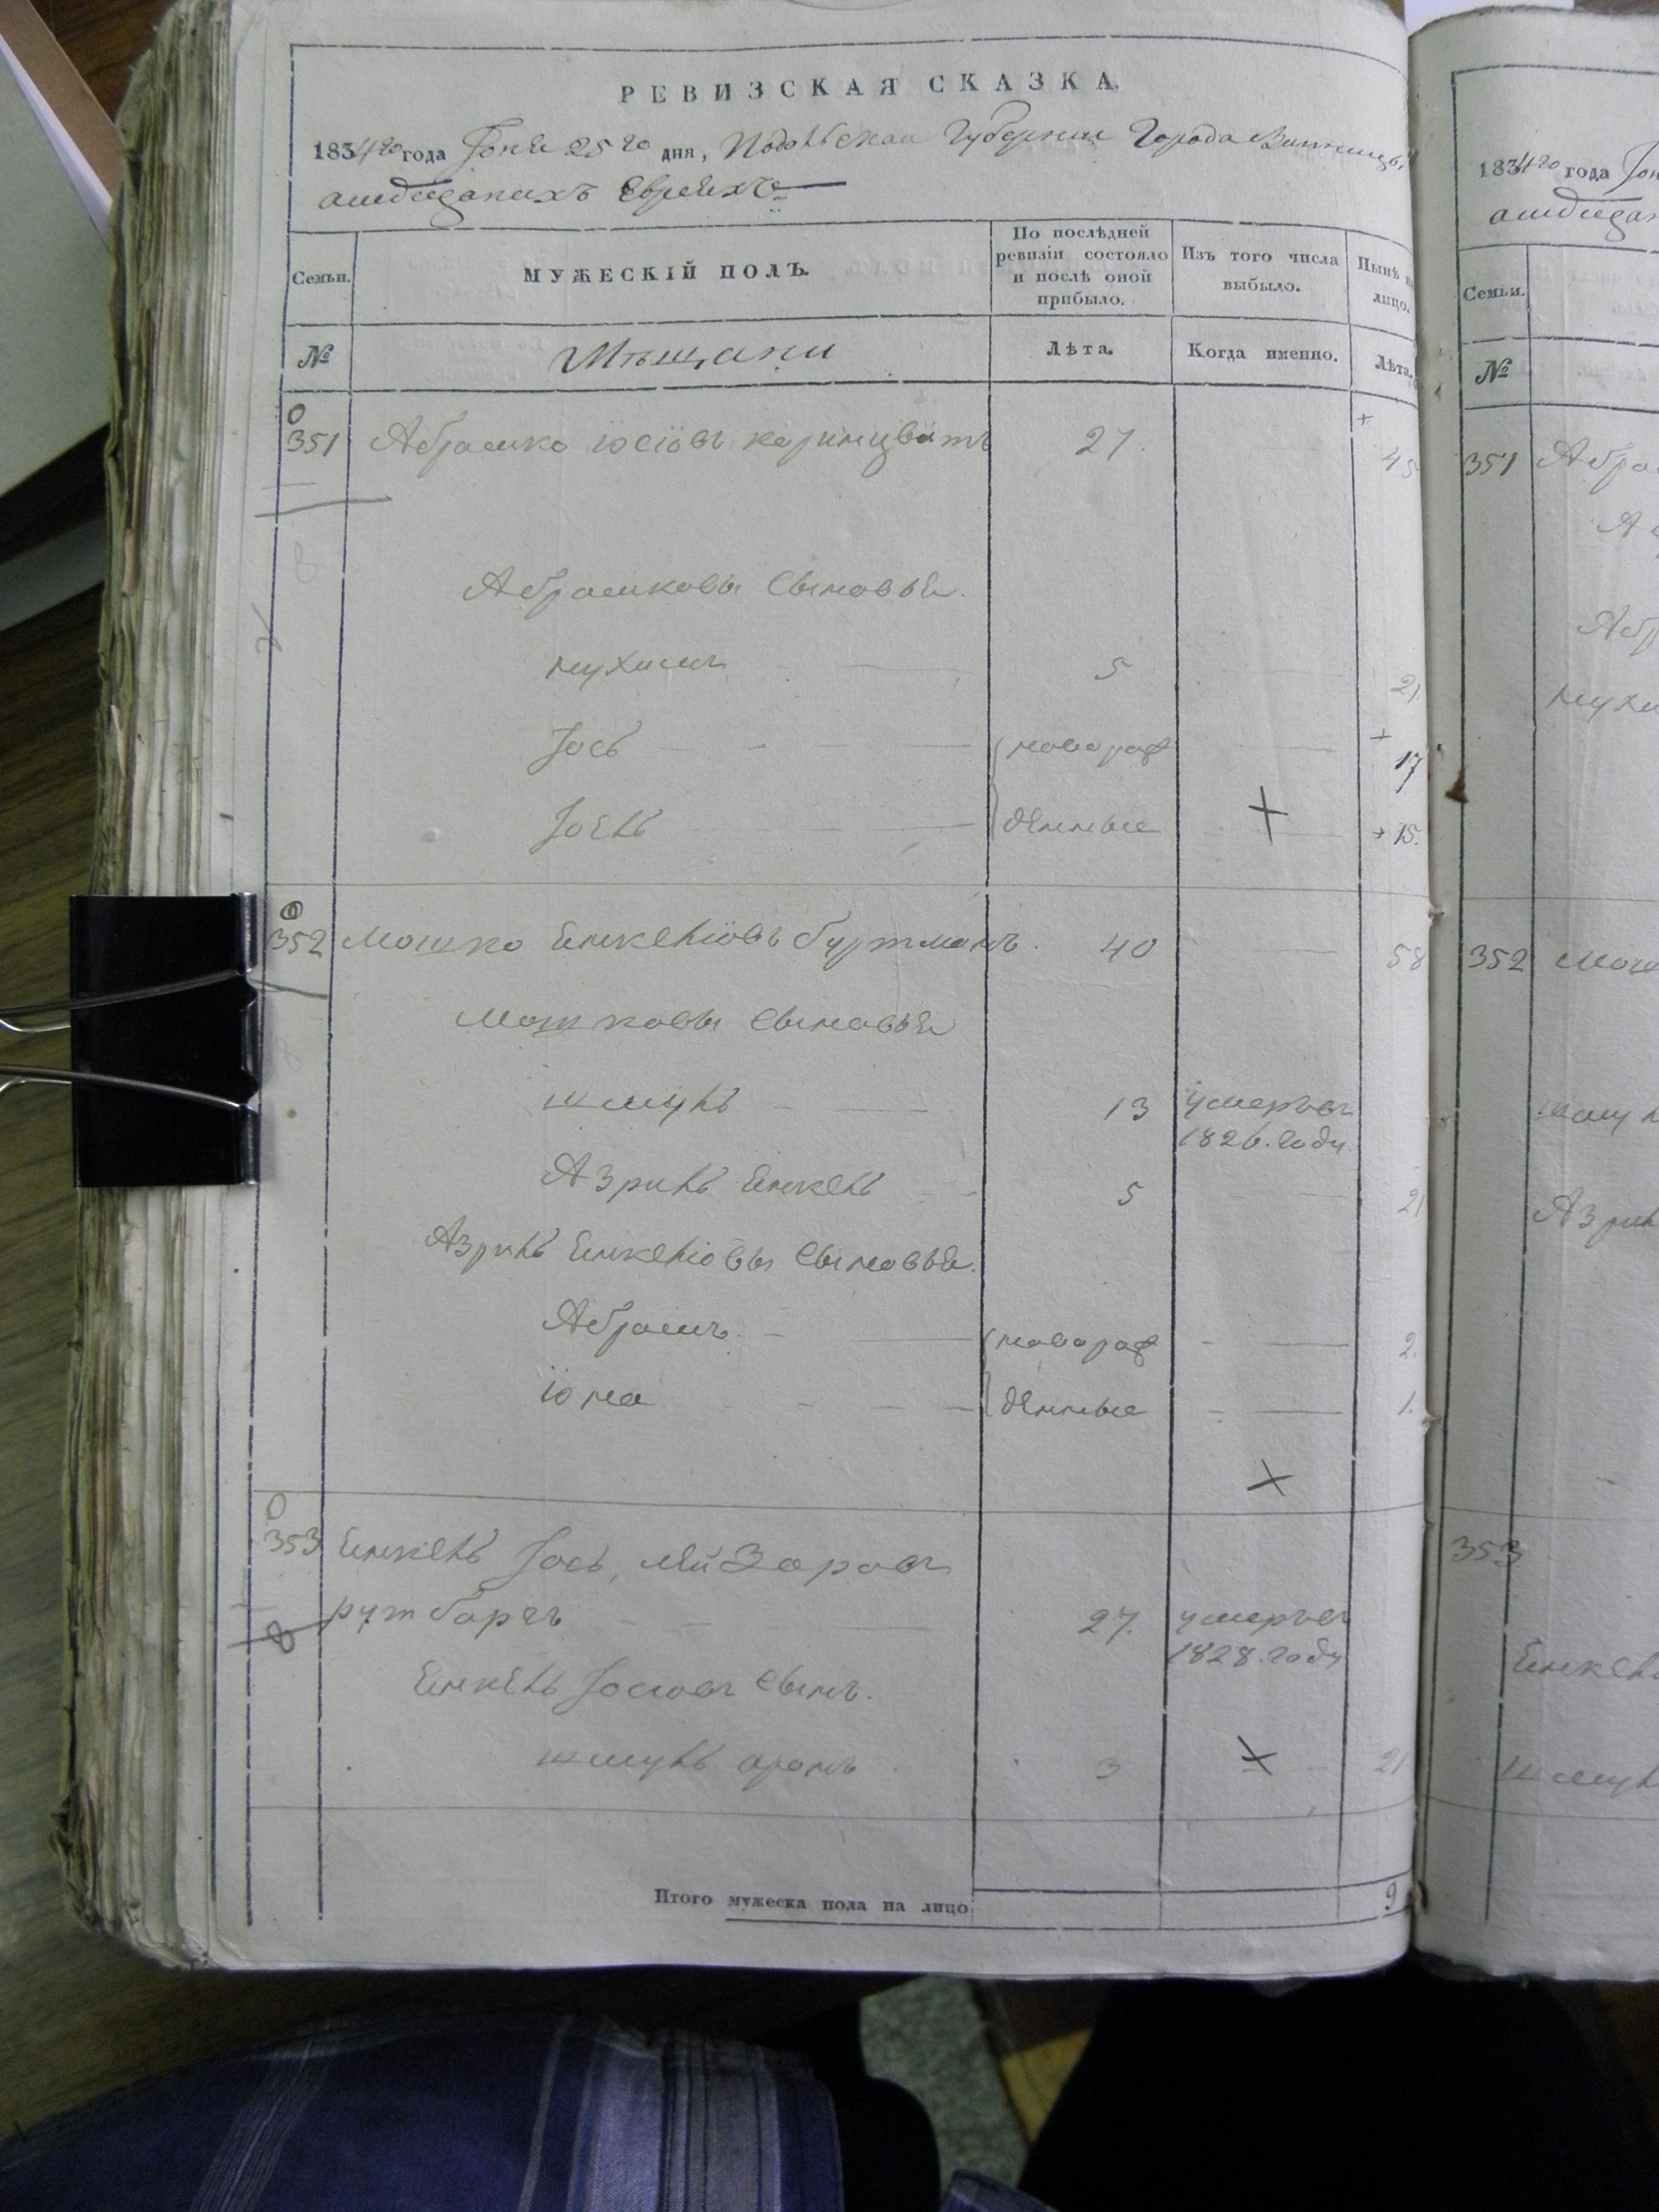 РЕВИЗСКАЯ СКАЗКА.
1834го года Іюня 25го дня, Подольской Губернии Города Винницы
Евреяхъ
Семьи.
МУЖЕСКІЙ ПОЛЪ.
По послѣдней ревизіи состояло и послѣ оной прибыло.
Изъ того числа выбыло.
Нынѣ на лицо.
№
Мѣщани
Лѣта.
Когда именно.
Лѣта.
351 Абрамко Іосіовъ 27. 45
Абрамковы Сыновья.
Нухимъ 5 21.
Іось новорож 17
Іоель денные 15.
352 Мошко Янкеліовъ Гуртманъ. 40 58
Мошковы Сыновья
Шмуль 13 умеръ въ
1826. году.
Азриль Янкель 5 21
Азриль Янкеліовы Сыновья.
Абрамъ. новорож 2.
Іона денные 1.
353 Янкель Іось, Лейзоровъ
27. умеръ въ
1828. году
Янкель Іосіовъ Сынъ.
Шмуль аронъ 3 21
Итого мужеска пола на лицо 9
Семьи.
№
1834го года
351 Абра
Нухи
352 Мош
Шмул
Азрил
353
Янкель
Шмул